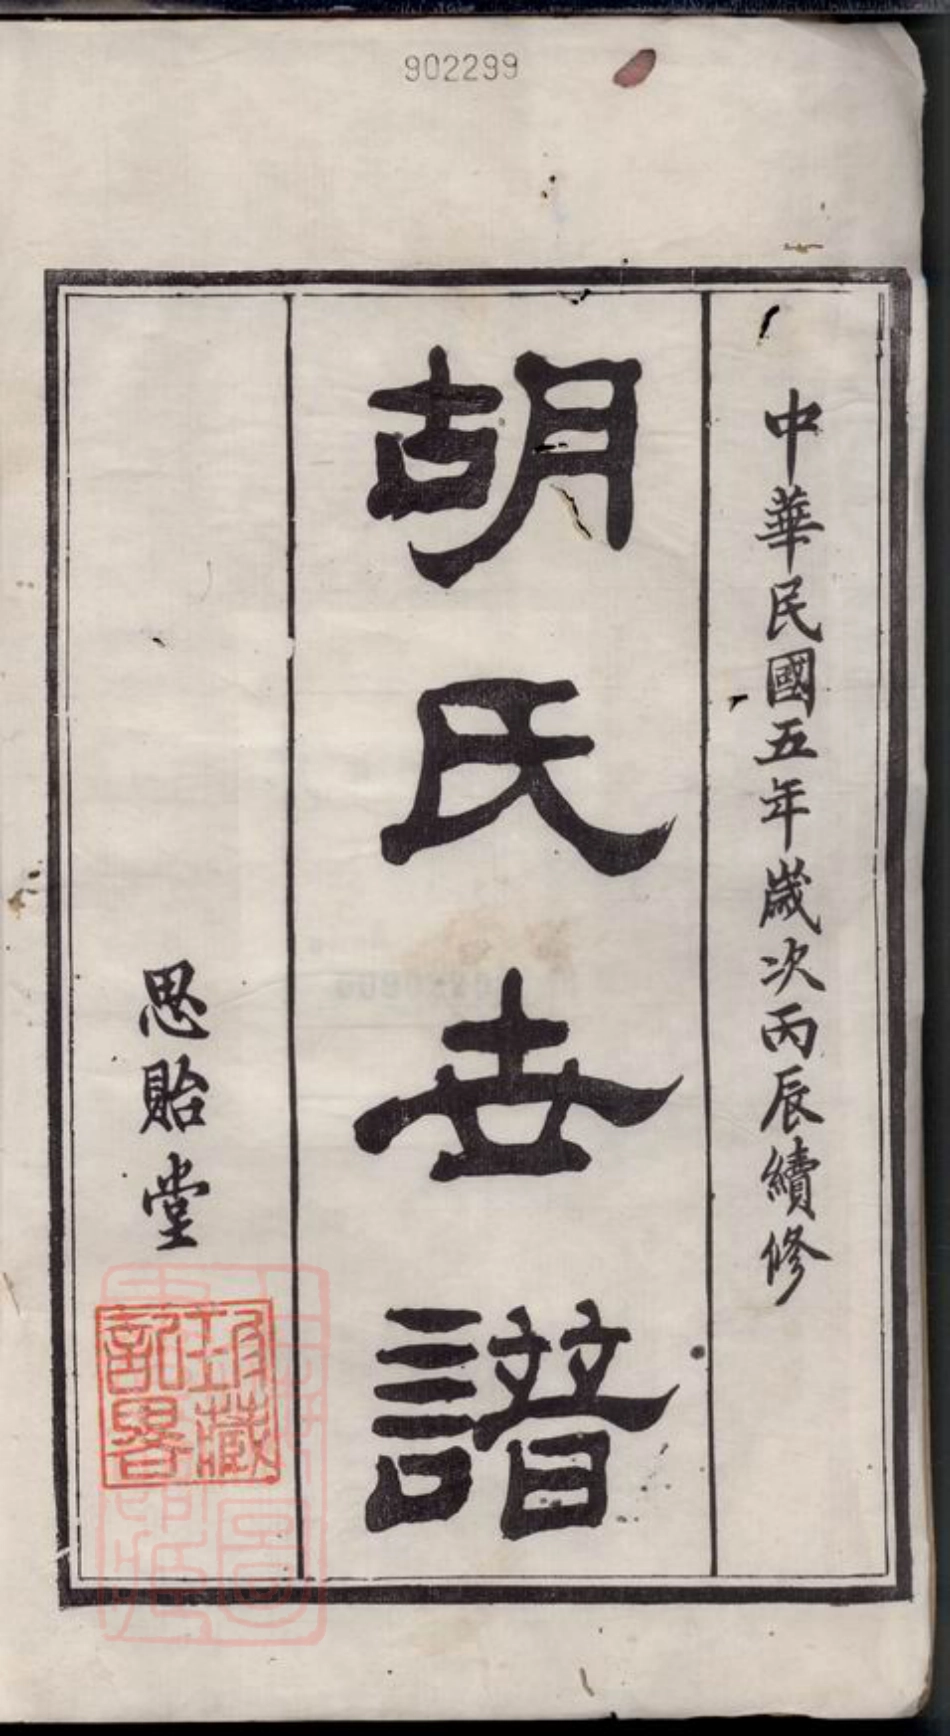 902299
中華民國五年歲次丙辰續修
胡氏世譜
思貽堂